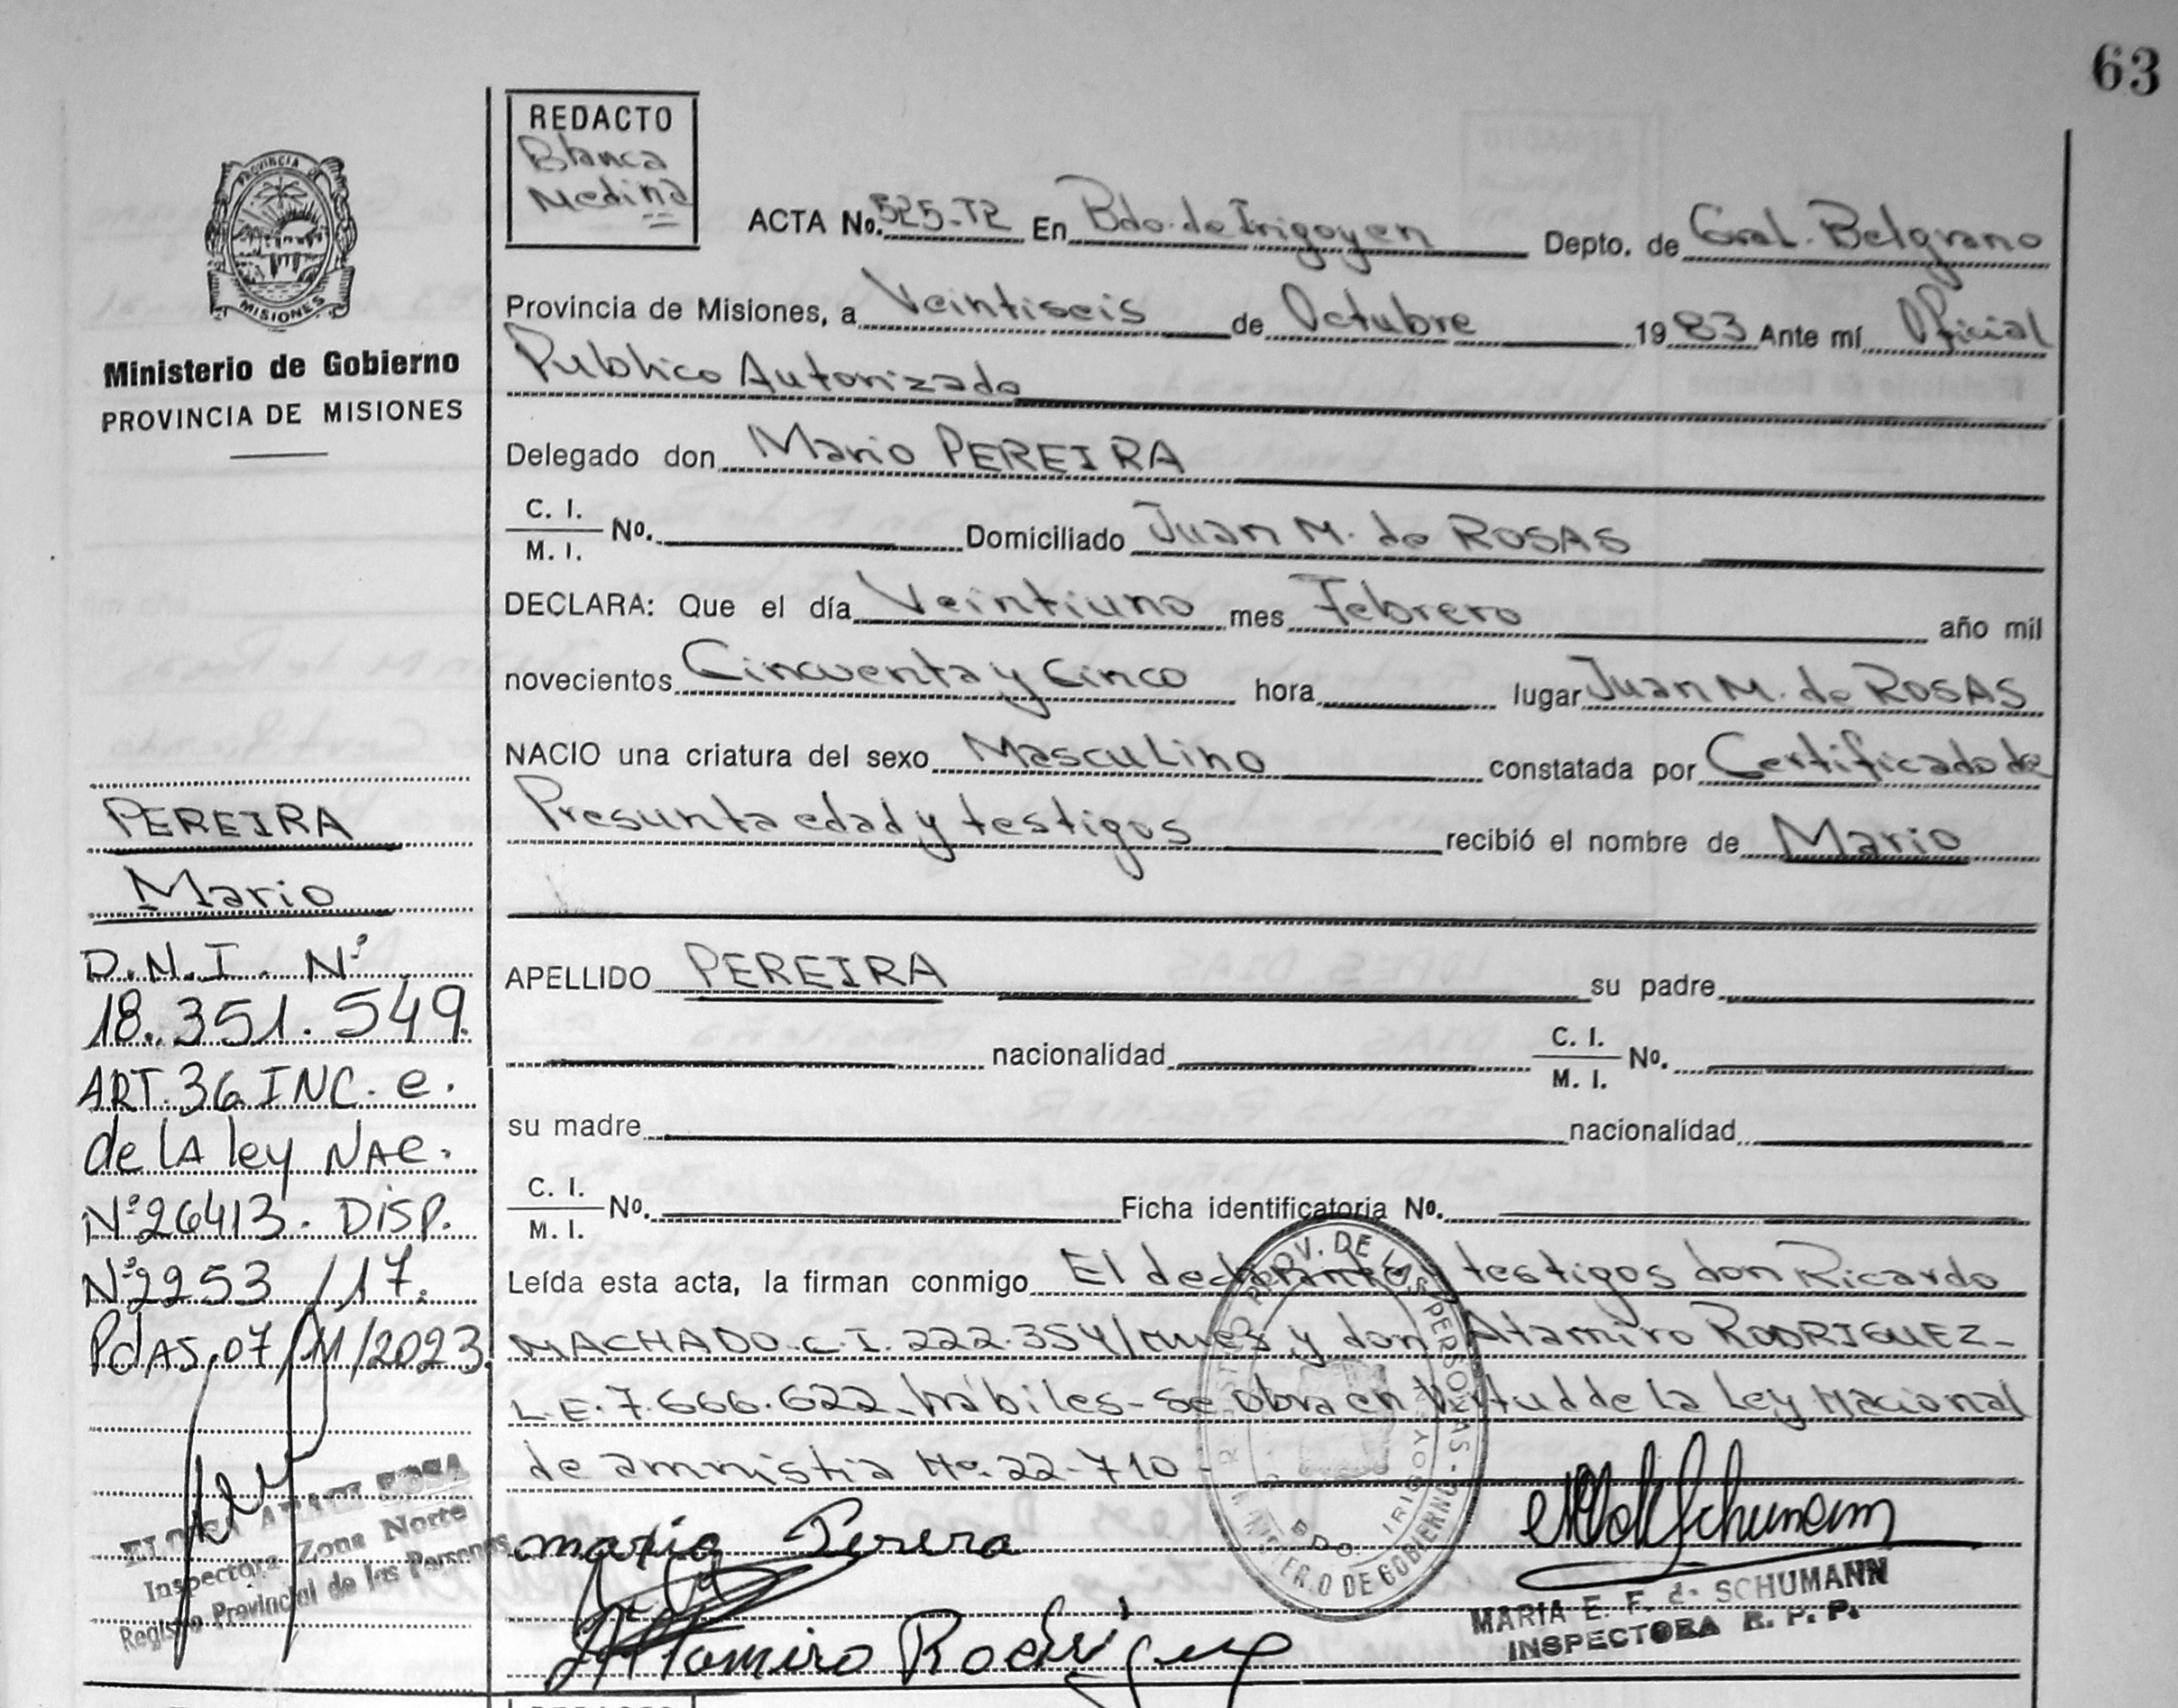 63
REDACTO
Blanca
Medina
ACTA No. 525-T2 En Bdo. de Irigoyen Depto. de Gral. Belgrano
Provincia de Misiones, a Veintiseis de Octubre 1983 Ante mí Oficial
Publico Autorizado
Delegado don Mario PEREIRA
C. I.
M. I. No. Domiciliado Juan M. de ROSAS
DECLARA: Que el día Veintiuno mes Febrero año mil
novecientos Cincuenta y Cinco hora lugar Juan M. de ROSAS
NACIO una criatura del sexo Masculino constatada por Certificado de
Presunta edad y testigos recibió el nombre de Mario
APELLIDO PEREIRA su padre
nacionalidad C. I.
M. I. No.
su madre nacionalidad
C. I.
M. I. No. Ficha identificatoria No.
Leída esta acta, la firman conmigo El declarante y testigos don Ricardo
MACHADO C.I. 222.354/ y don Atamiro RODRIGUEZ-
L.E. 7.666.622 hábiles- Se obra en Virtud de la Ley Nacional
de amnistia No. 22-710
mario Perera
Altamiro Rodriguez
MARIA E. F. de SCHUMANN
INSPECTORA R. P. P.
PROV. DE LAS PERSONAS
MINISTERIO DE GOBIERNO
BDO. IRIGOYEN
PROVINCIA
MISIONES
Ministerio de Gobierno
PROVINCIA DE MISIONES
PEREIRA
Mario
D.N.I. Nº
18.351.549.
ART. 36 INC. e.
de LA ley NAC.
Nº 26413. DISP.
Nº 2253 /17.
PdAS, 07/11/2023.
Inspectora Zona Norte
Registro Provincial de las Personas